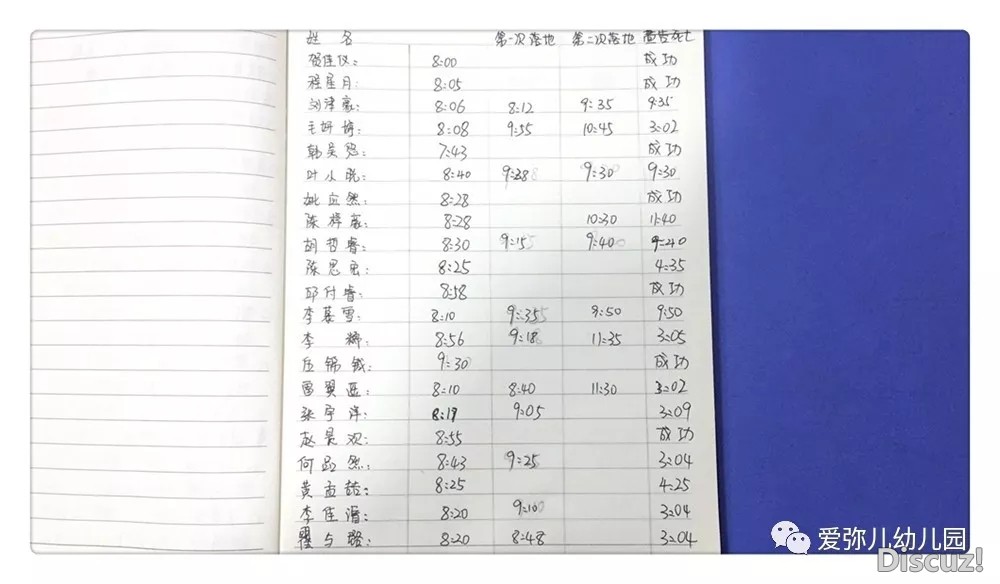 姓 名 第一次落地 第二次落地 宣告死亡
贺佳仪: 8:00 成功
程星月: 8:05 成功
刘泽豪: 8:06 8:12 9:35 9:35
毛妍婷: 8:08 9:55 10:45 3:02
韩昊 : 7:43 成功
叶小晚: 8:40 9:38 9:30 9:30
姚应然: 8:28 成功
陈梓豪: 8:28 10:30 11:40
胡哲睿: 8:30 9:15 9:40 9:40
陈思 : 8:25 4:35
邱付睿: 8:58 成功
李慕雪: 8:10 9:35 9:50 9:50
李 : 8:56 9:18 11:35 3:05
锦钺: 9:30 成功
雷翼 : 8:10 8:40 11:30 3:02
张宇洋: 8:19 9:05 3:09
赵景欢: 8:55 成功
何 然: 8:43 9:25 3:04
黄孟 : 8:25 4:25
李佳 : 8:20 9:10 3:04
与 : 8:20 8:48 3:04
爱弥儿幼儿园
Discuz!